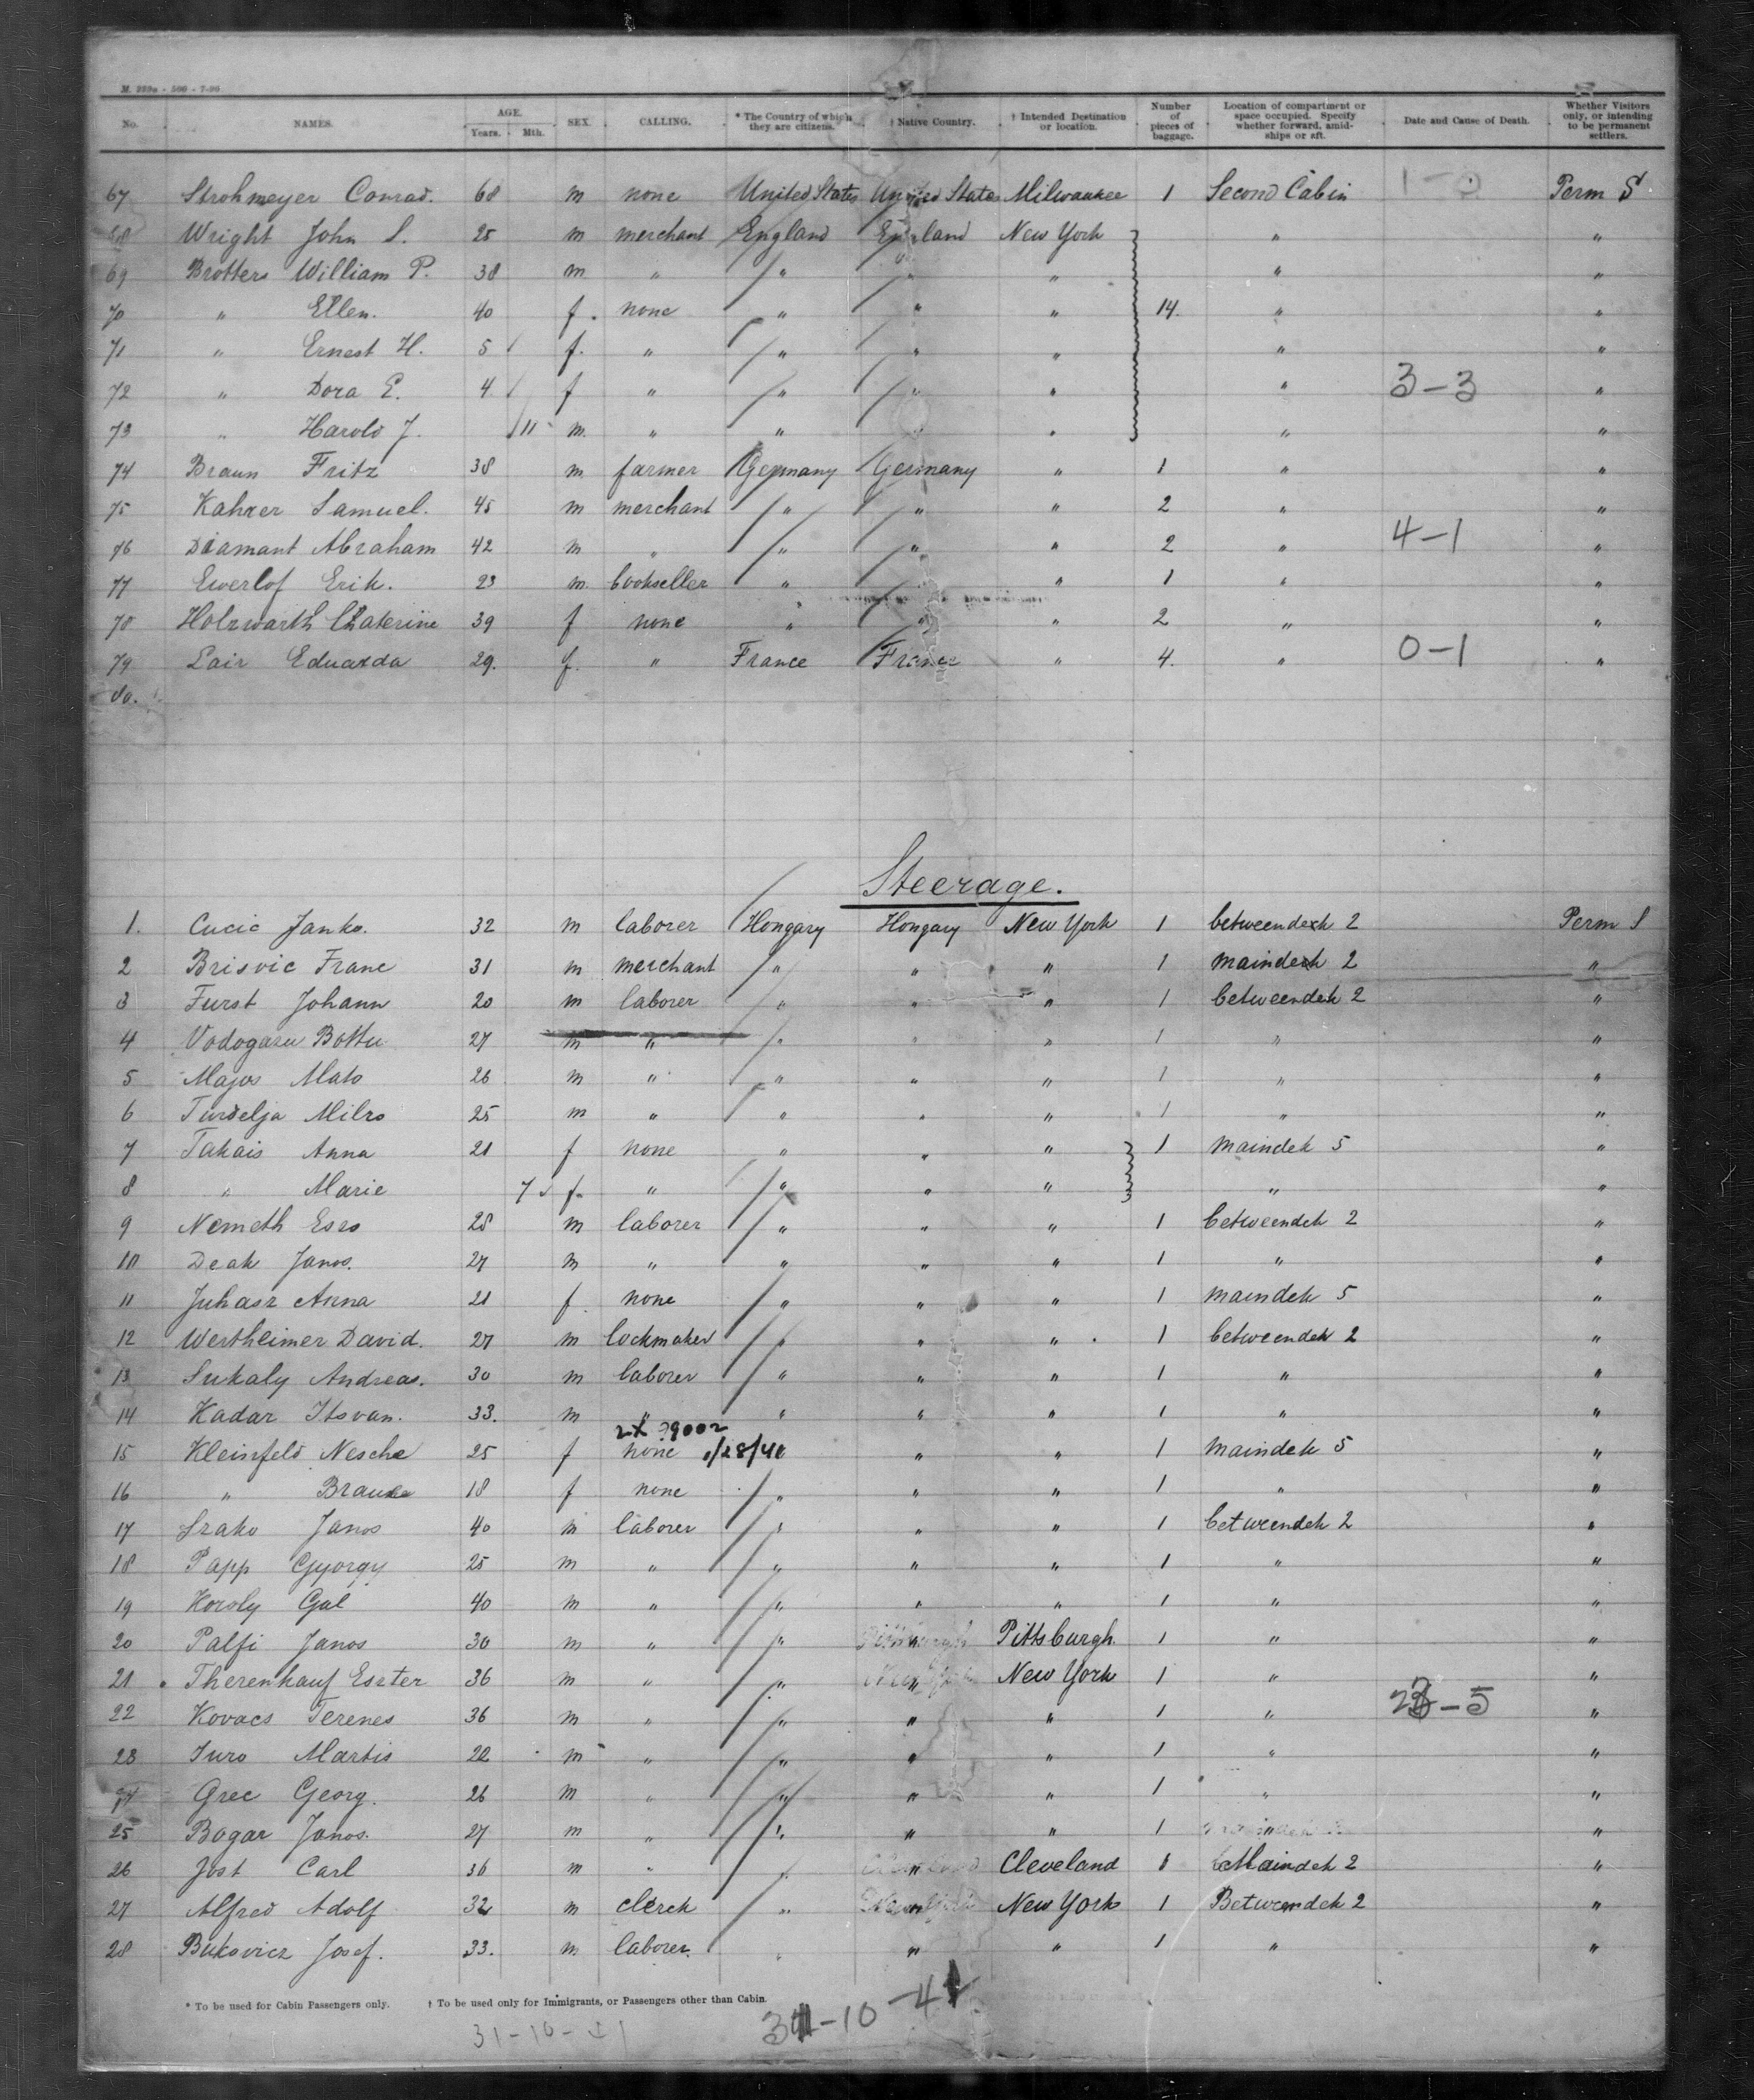 M. 229a - 500 - 7-95
No. NAMES. AGE. Years. Mth. SEX. CALLING. * The Country of which they are citizens. † Native Country. † Intended Destination or location. Number of pieces of baggage. Location of compartment or space occupied. Specify whether forward, amidships or aft. Date and Cause of Death. Whether Visitors only, or intending to be permanent settlers.
67 Strohmeyer Conrad. 68 m none United States United States Milwaukee 1 Second Cabin Perm S
68 Wright John S. 25 m merchant England England New York " "
69 Brotters William P. 38 m " " " " " "
70 " Ellen. 40 f. none " " " 14. " "
71 " Ernest H. 5 f. " " " " " "
72 " Dora E. 4 f " " " " " 3-3 "
73 " Harold J. 11 m. " " " " " "
74 Braun Fritz 38 m farmer Germany Germany " 1 " "
75 Kahrer Samuel. 45 m merchant " " " 2 " "
76 Diamant Abraham 42 m " " " " 2 " 4-1 "
77 Ewerlof Erik. 23 m. bookseller " " " 1 " "
78 Holzwarth Chaterine 39 f none " " " 2 " "
79 Lair Eduarda 29. f. " France France " 4. " 0-1 "
80.
Steerage.
1. Cucic Janko. 32 m laborer Hongary Hongary New York 1 betweendeck 2 Perm S
2 Brisvic Franc 31 m merchant " " " 1 maindeck 2 "
3 Furst Johann 20 m laborer " " " 1 betweendek 2 "
4 Vodogazu Bottu 27 m " " " " 1 " "
5 Majos Mato 26 m " " " " 1 " "
6 Turdelja Milro 25 m " " " " 1 " "
7 Takais Anna 21 f none " " " 1 maindek 5 "
8 " Marie 7 f. " " " " " "
9 Nemeth Esro 28 m laborer " " " 1 betweendek 2 "
10 Deak Janos. 27 m " " " " 1 " "
11 Juhasz Anna 21 f. none " " " 1 maindek 5 "
12 Wertheimer David. 27 m lockmaker " " " 1 betweendek 2 "
13 Sukaly Andreas. 30 m laborer " " " 1 " "
14 Kadar Itsvan. 33. m " " " " 1 " "
2X 29002
15 Kleinfeld Nesche 25 f none 1/28/40 " " 1 maindek 5 "
16 " 18 f none " " " 1 " "
17 Szako Janos 40 m laborer " " " 1 betweendek 2 "
18 Papp Gyorgy 25 m " " " " 1 " "
19 Koroly Gal 40 m " " " " 1 " "
20 Palfi Janos 30 m " " " Pittsburgh. 1 " "
21 Therenkauf Eszter 36 m " " " New York 1 " "
22 Kovacs Terenes 36 m " " " " 1 " "
23 Juro Martis 22 m " " " " 1 " "
24 Grec Georg. 26 m " " " " 1 " "
25 Bogar Janos. 27 m " " " " 1 " "
26 Jost Carl 36 m " " " Cleveland 1 Maindek 2 "
27 Alfred Adolf 32 m clerck " " New York 1 Betweendek 2 "
28 Bukovicz Josef. 33. m laborer. " " " 1 " "
* To be used for Cabin Passengers only. † To be used only for Immigrants, or Passengers other than Cabin.